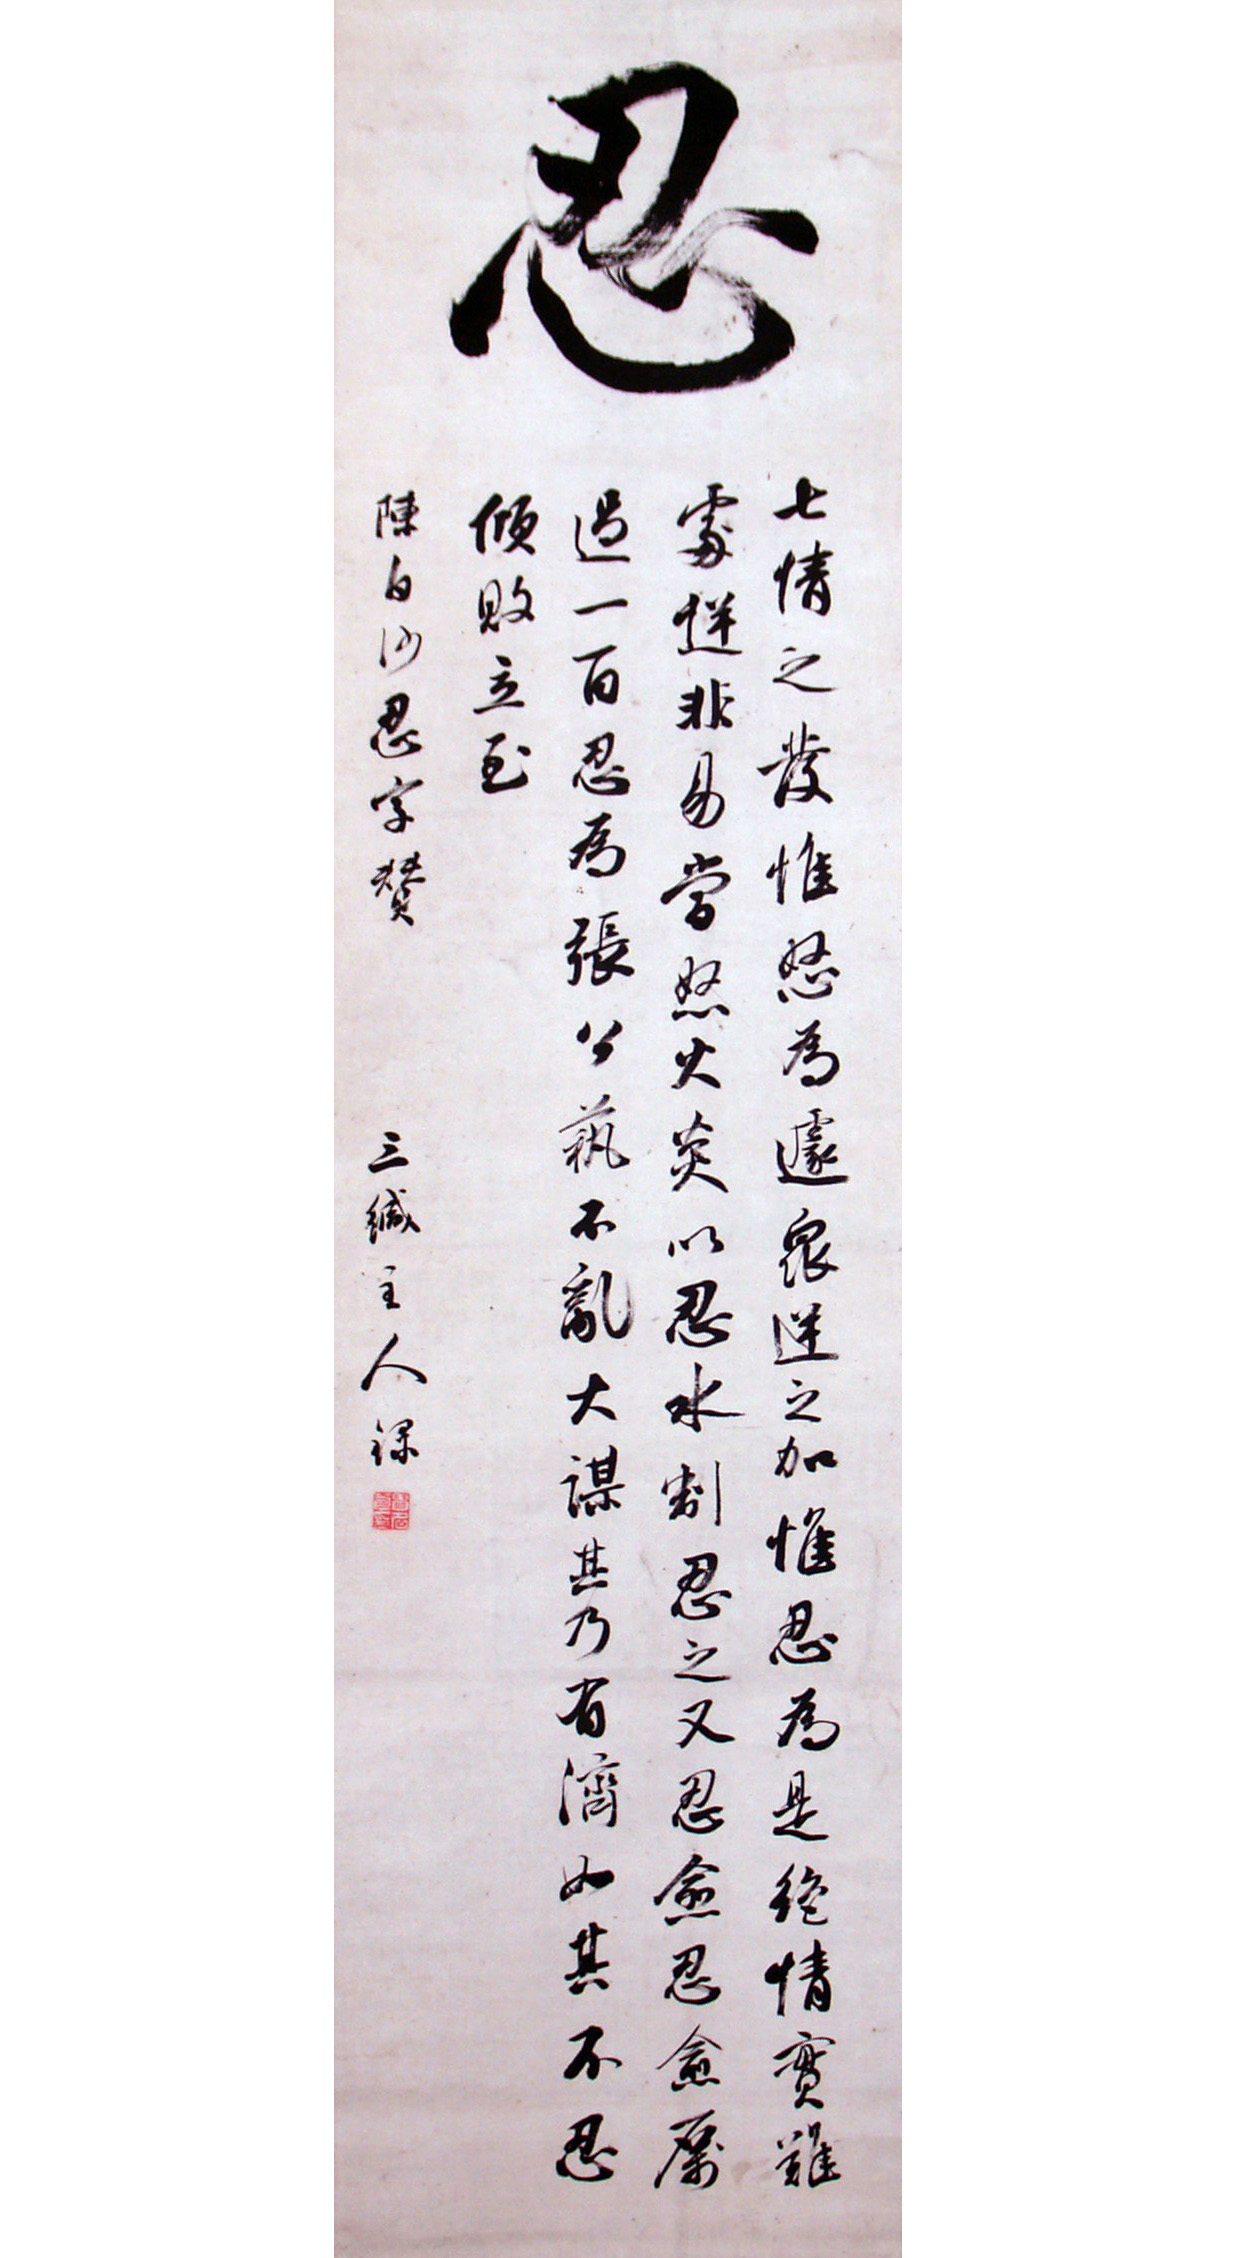 忍
七情之發惟怒為遽眾逆之加惟忍為是絕情實難
處逆非易當怒火炎以忍水制忍之又忍愈忍愈厲
過一百忍為張公藝不亂大謀其乃有濟如其不忍
傾敗立至
陳白沙忍字贊
三緘主人録